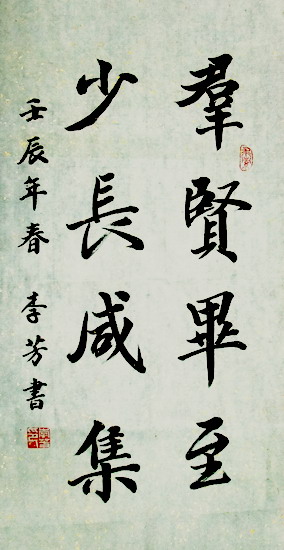 羣賢畢至
少長咸集
壬辰年春 李芳書